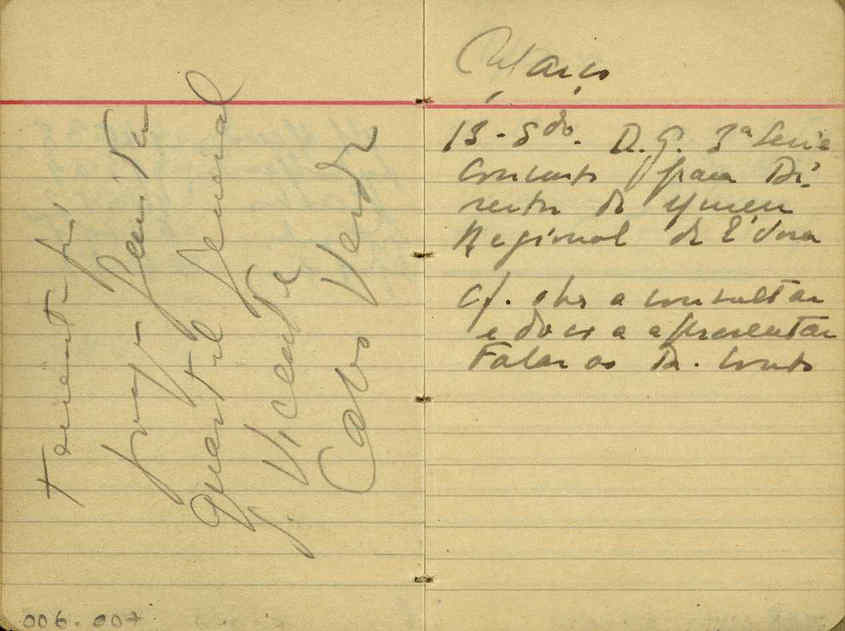 Tenente
Quartel General
S. Vicente
Cabo Verde
006-007
Março
13 - Sdo. D.G. 3ª Serie
Concurso para Di-
rector do Museu
Regional de Évora
Cf. obs a consultar
e docs a apresentar
Falar ao Dr. Couto